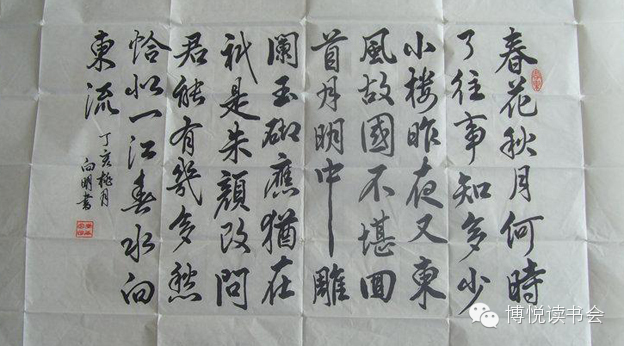 春花秋月何時
了往事知多少
小楼昨夜又東
風故國不堪回
首月明中雕
闌玉砌應猶在
衹是朱顔改問
君能有幾多愁
恰似一江春水向
東流
丁亥桃月
向明書
博悦读书会